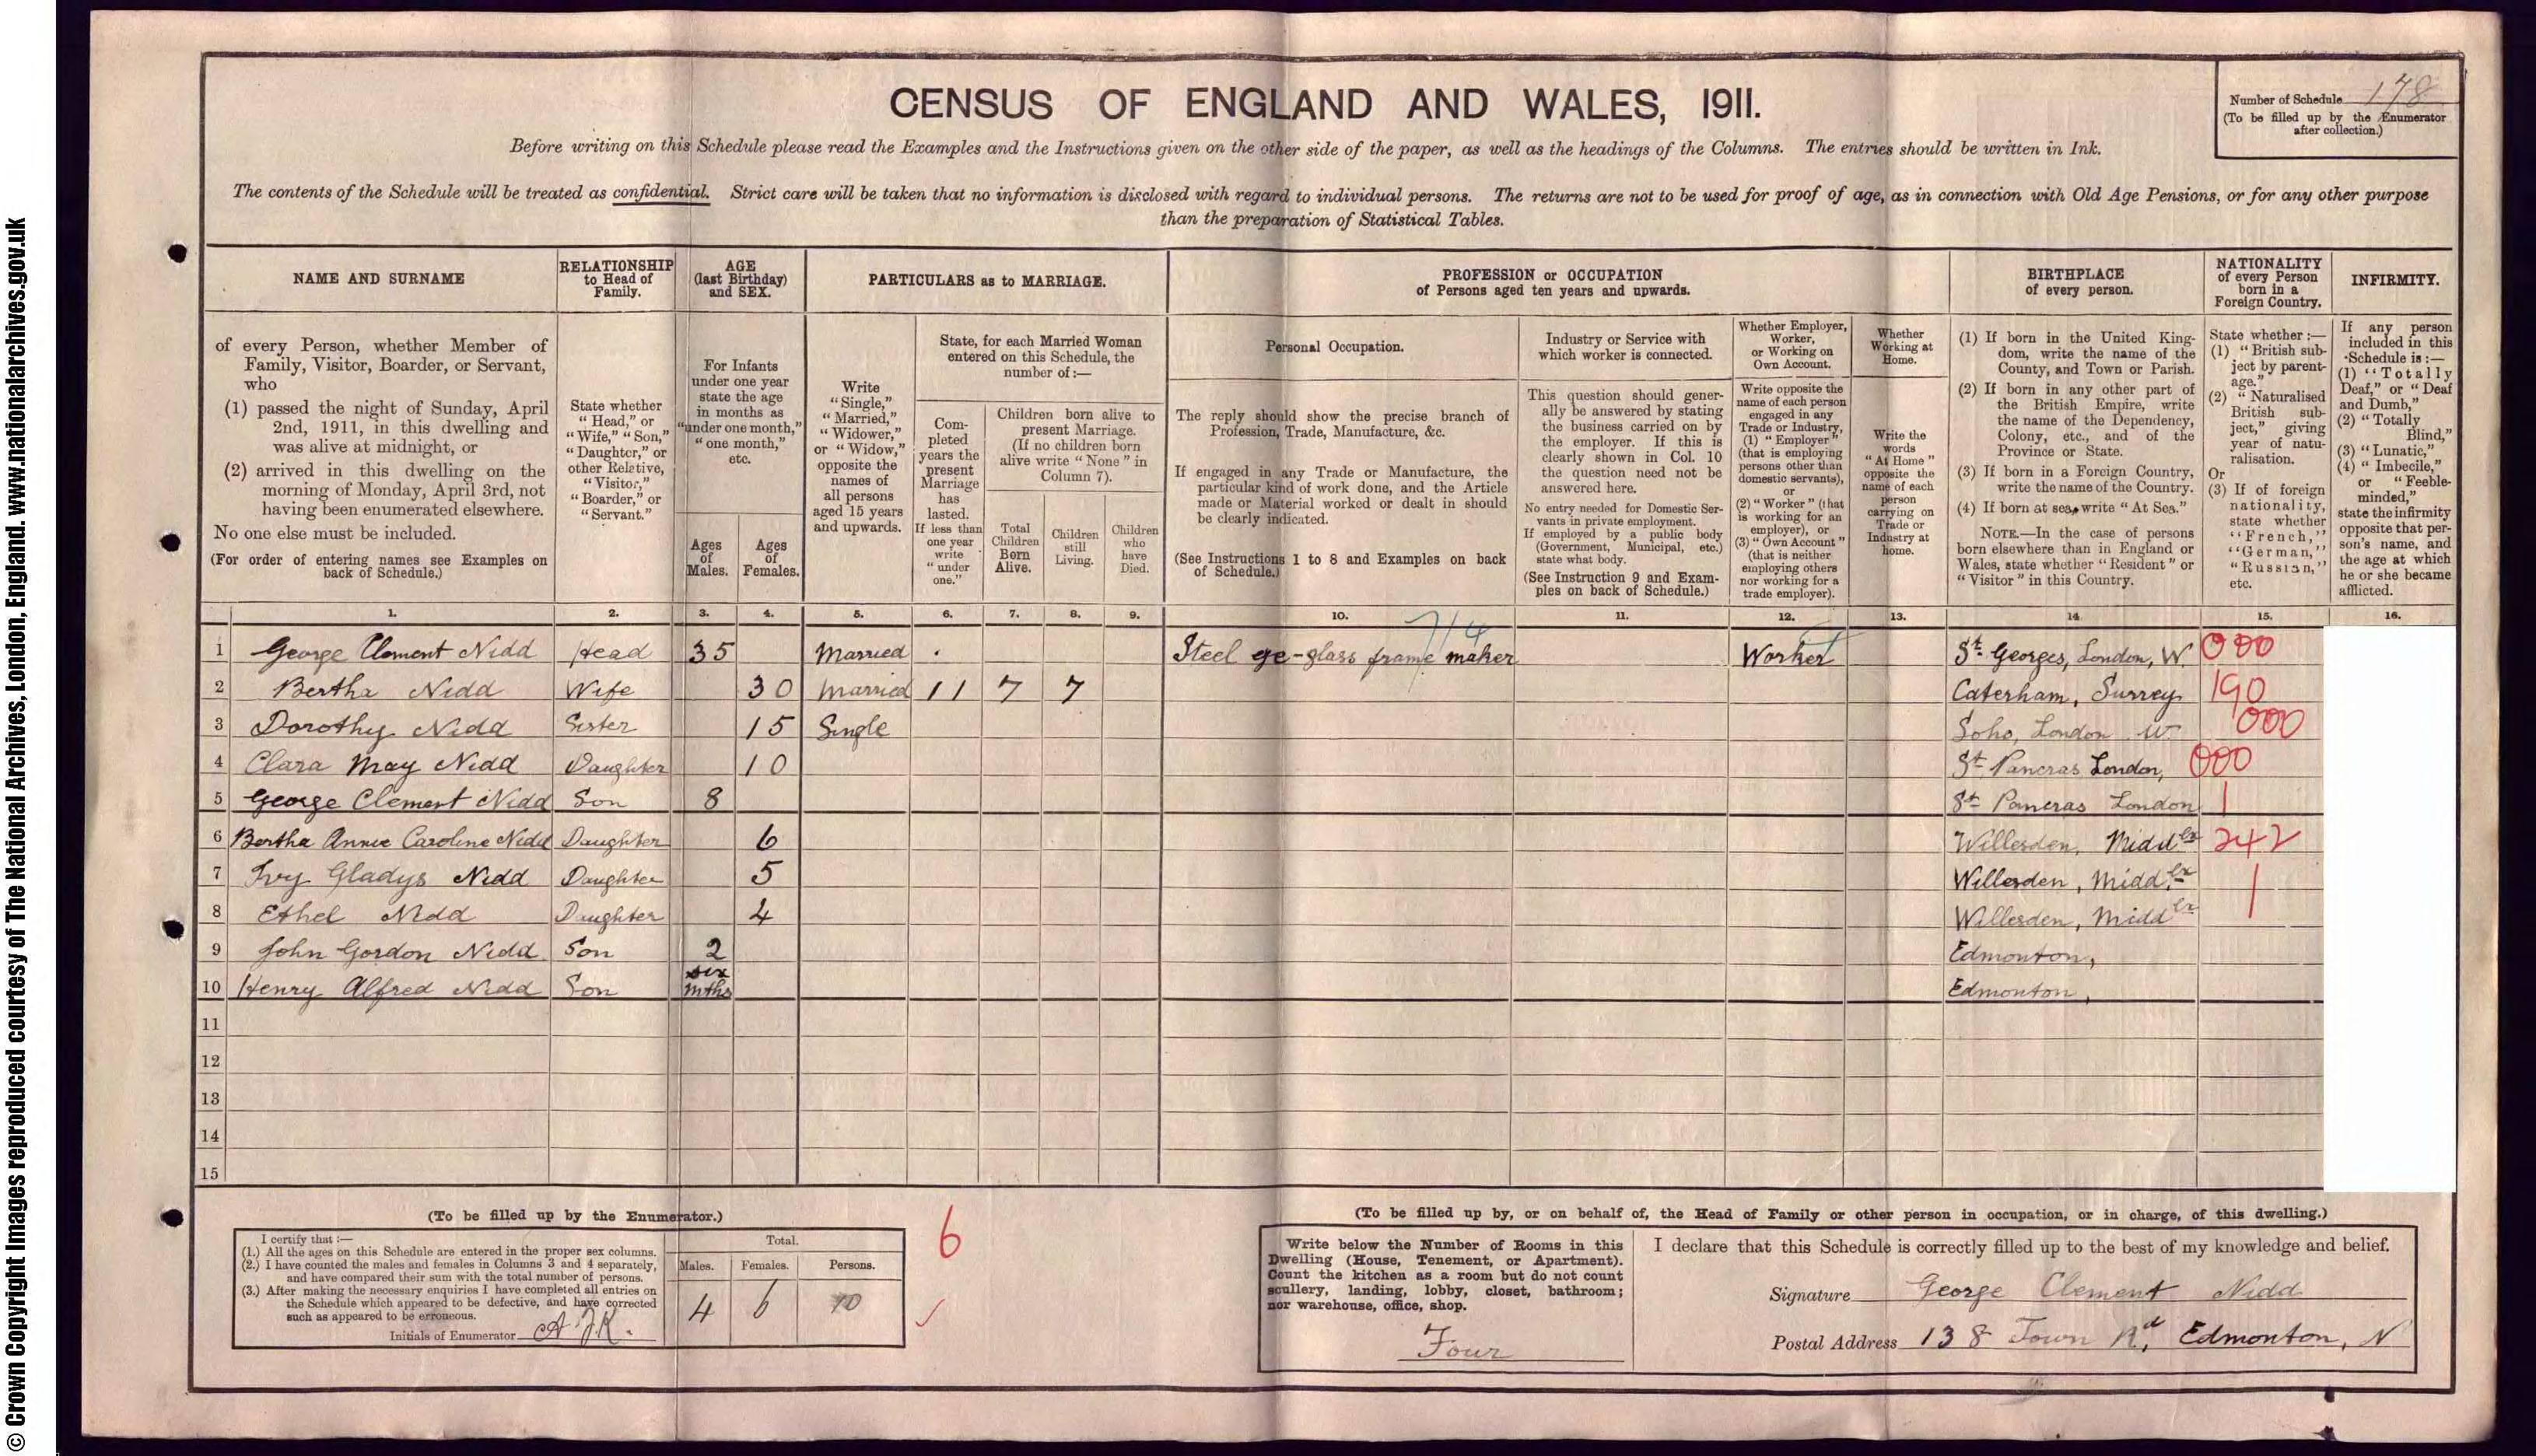 CENSUS OF ENGLAND AND WALES, 1911.
Number of Schedule 178
(To be filled up by the Enumerator
after collection.)
Before writing on this Schedule please read the Examples and the Instructions given on the other side of the paper, as well as the headings of the Columns. The entries should be written in Ink.
The contents of the Schedule will be treated as confidential. Strict care will be taken that no information is disclosed with regard to individual persons. The returns are not to be used for proof of age, as in connection with Old Age Pensions, or for any other purpose
than the preparation of Statistical Tables.
NAME AND SURNAME
of every Person, whether Member of
Family, Visitor, Boarder, or Servant,
who
(1) passed the night of Sunday, April
2nd, 1911, in this dwelling and
was alive at midnight, or
(2) arrived in this dwelling on the
morning of Monday, April 3rd, not
having been enumerated elsewhere.
No one else must be included.
(For order of entering names see Examples on
back of Schedule.)
RELATIONSHIP
to Head of
Family.
State whether
"Head," or
"Wife," "Son,"
"Daughter," or
other Relative,
"Visitor,"
"Boarder," or
"Servant."
AGE
(last Birthday)
and SEX.
For Infants
under one year
state the age
in months as
"under one month,"
"one month,"
etc.
Ages
of
Males.
Ages
of
Females.
PARTICULARS as to MARRIAGE.
Write
"Single,"
"Married,"
"Widower,"
or "Widow,"
opposite the
names of
all persons
aged 15 years
and upwards.
State, for each Married Woman
entered on this Schedule, the
number of:—
Com-
pleted
years the
present
Marriage
has
lasted.
If less than
one year
write
"under
one."
Children born alive to
present Marriage.
(If no children born
alive write "None" in
Column 7).
Total
Children
Born
Alive.
Children
still
Living.
Children
who
have
Died.
PROFESSION or OCCUPATION
of Persons aged ten years and upwards.
Personal Occupation.
The reply should show the precise branch of
Profession, Trade, Manufacture, &c.
If engaged in any Trade or Manufacture, the
particular kind of work done, and the Article
made or Material worked or dealt in should
be clearly indicated.
(See Instructions 1 to 8 and Examples on back
of Schedule.)
Industry or Service with
which worker is connected.
This question should gener-
ally be answered by stating
the business carried on by
the employer. If this is
clearly shown in Col. 10
the question need not be
answered here.
No entry needed for Domestic Ser-
vants in private employment.
If employed by a public body
(Government, Municipal, etc.)
state what body.
(See Instruction 9 and Exam-
ples on back of Schedule.)
Whether Employer,
Worker,
or Working on
Own Account.
Write opposite the
name of each person
engaged in any
Trade or Industry,
(1) "Employer"
(that is employing
persons other than
domestic servants),
or
(2) "Worker" (that
is working for an
employer), or
(3) "Own Account"
(that is neither
employing others
nor working for a
trade employer).
Whether
Working at
Home.
Write the
words
"At Home"
opposite the
name of each
person
carrying on
Trade or
Industry at
home.
BIRTHPLACE
of every person.
(1) If born in the United King-
dom, write the name of the
County, and Town or Parish.
(2) If born in any other part of
the British Empire, write
the name of the Dependency,
Colony, etc., and of the
Province or State.
(3) If born in a Foreign Country,
write the name of the Country.
(4) If born at sea, write "At Sea."
NOTE.—In the case of persons
born elsewhere than in England or
Wales, state whether "Resident" or
"Visitor" in this Country.
NATIONALITY
of every Person
born in a
Foreign Country.
State whether :—
(1) "British sub-
ject by parent-
age."
(2) "Naturalised
British sub-
ject," giving
year of natu-
ralisation.
Or
(3) If of foreign
nationality,
state whether
"French,"
"German,"
"Russian,"
etc.
INFIRMITY.
If any person
included in this
Schedule is :—
(1) "Totally
Deaf," or "Deaf
and Dumb,"
(2) "Totally
Blind,"
(3) "Lunatic,"
(4) "Imbecile,"
or "Feeble-
minded,"
state the infirmity
opposite that per-
son's name, and
the age at which
he or she became
afflicted.
1. 2. 3. 4. 5. 6. 7. 8. 9. 10. 11. 12. 13. 14. 15. 16.
7/4
1 George Clement Nidd Head 35 Married Steel eye-glass frame maker Worker St. Georges, London, W. 000
2 Bertha Nidd Wife 30 Married 11 7 7 Caterham, Surrey 190
3 Dorothy Nidd Sister 15 Single Soho, London W 000
4 Clara May Nidd Daughter 10 St Pancras London, 000
5 George Clement Nidd Son 8 St Pancras London 1
6 Bertha Annie Caroline Nidd Daughter 6 Willesden, Middlex 242
7 Ivy Gladys Nidd Daughter 5 Willesden, Middlex 1
8 Ethel Nidd Daughter 4 Willesden, Middlex
9 John Gordon Nidd Son 2 Edmonton,
10 Henry Alfred Nidd Son six mths Edmonton,
11
12
13
14
15
(To be filled up by the Enumerator.)
I certify that :—
(1.) All the ages on this Schedule are entered in the proper sex columns.
(2.) I have counted the males and females in Columns 3 and 4 separately,
and have compared their sum with the total number of persons.
(3.) After making the necessary enquiries I have completed all entries on
the Schedule which appeared to be defective, and have corrected
such as appeared to be erroneous.
Initials of Enumerator A.J.K.
Total.
Males. Females. Persons.
4 6 10
6
(To be filled up by, or on behalf of, the Head of Family or other person in occupation, or in charge, of this dwelling.)
Write below the Number of Rooms in this
Dwelling (House, Tenement, or Apartment).
Count the kitchen as a room but do not count
scullery, landing, lobby, closet, bathroom;
nor warehouse, office, shop.
Four
I declare that this Schedule is correctly filled up to the best of my knowledge and belief.
Signature George Clement Nidd
Postal Address 138 Town Rd, Edmonton, N
© Crown Copyright Images reproduced courtesy of The National Archives, London, England. www.nationalarchives.gov.uk